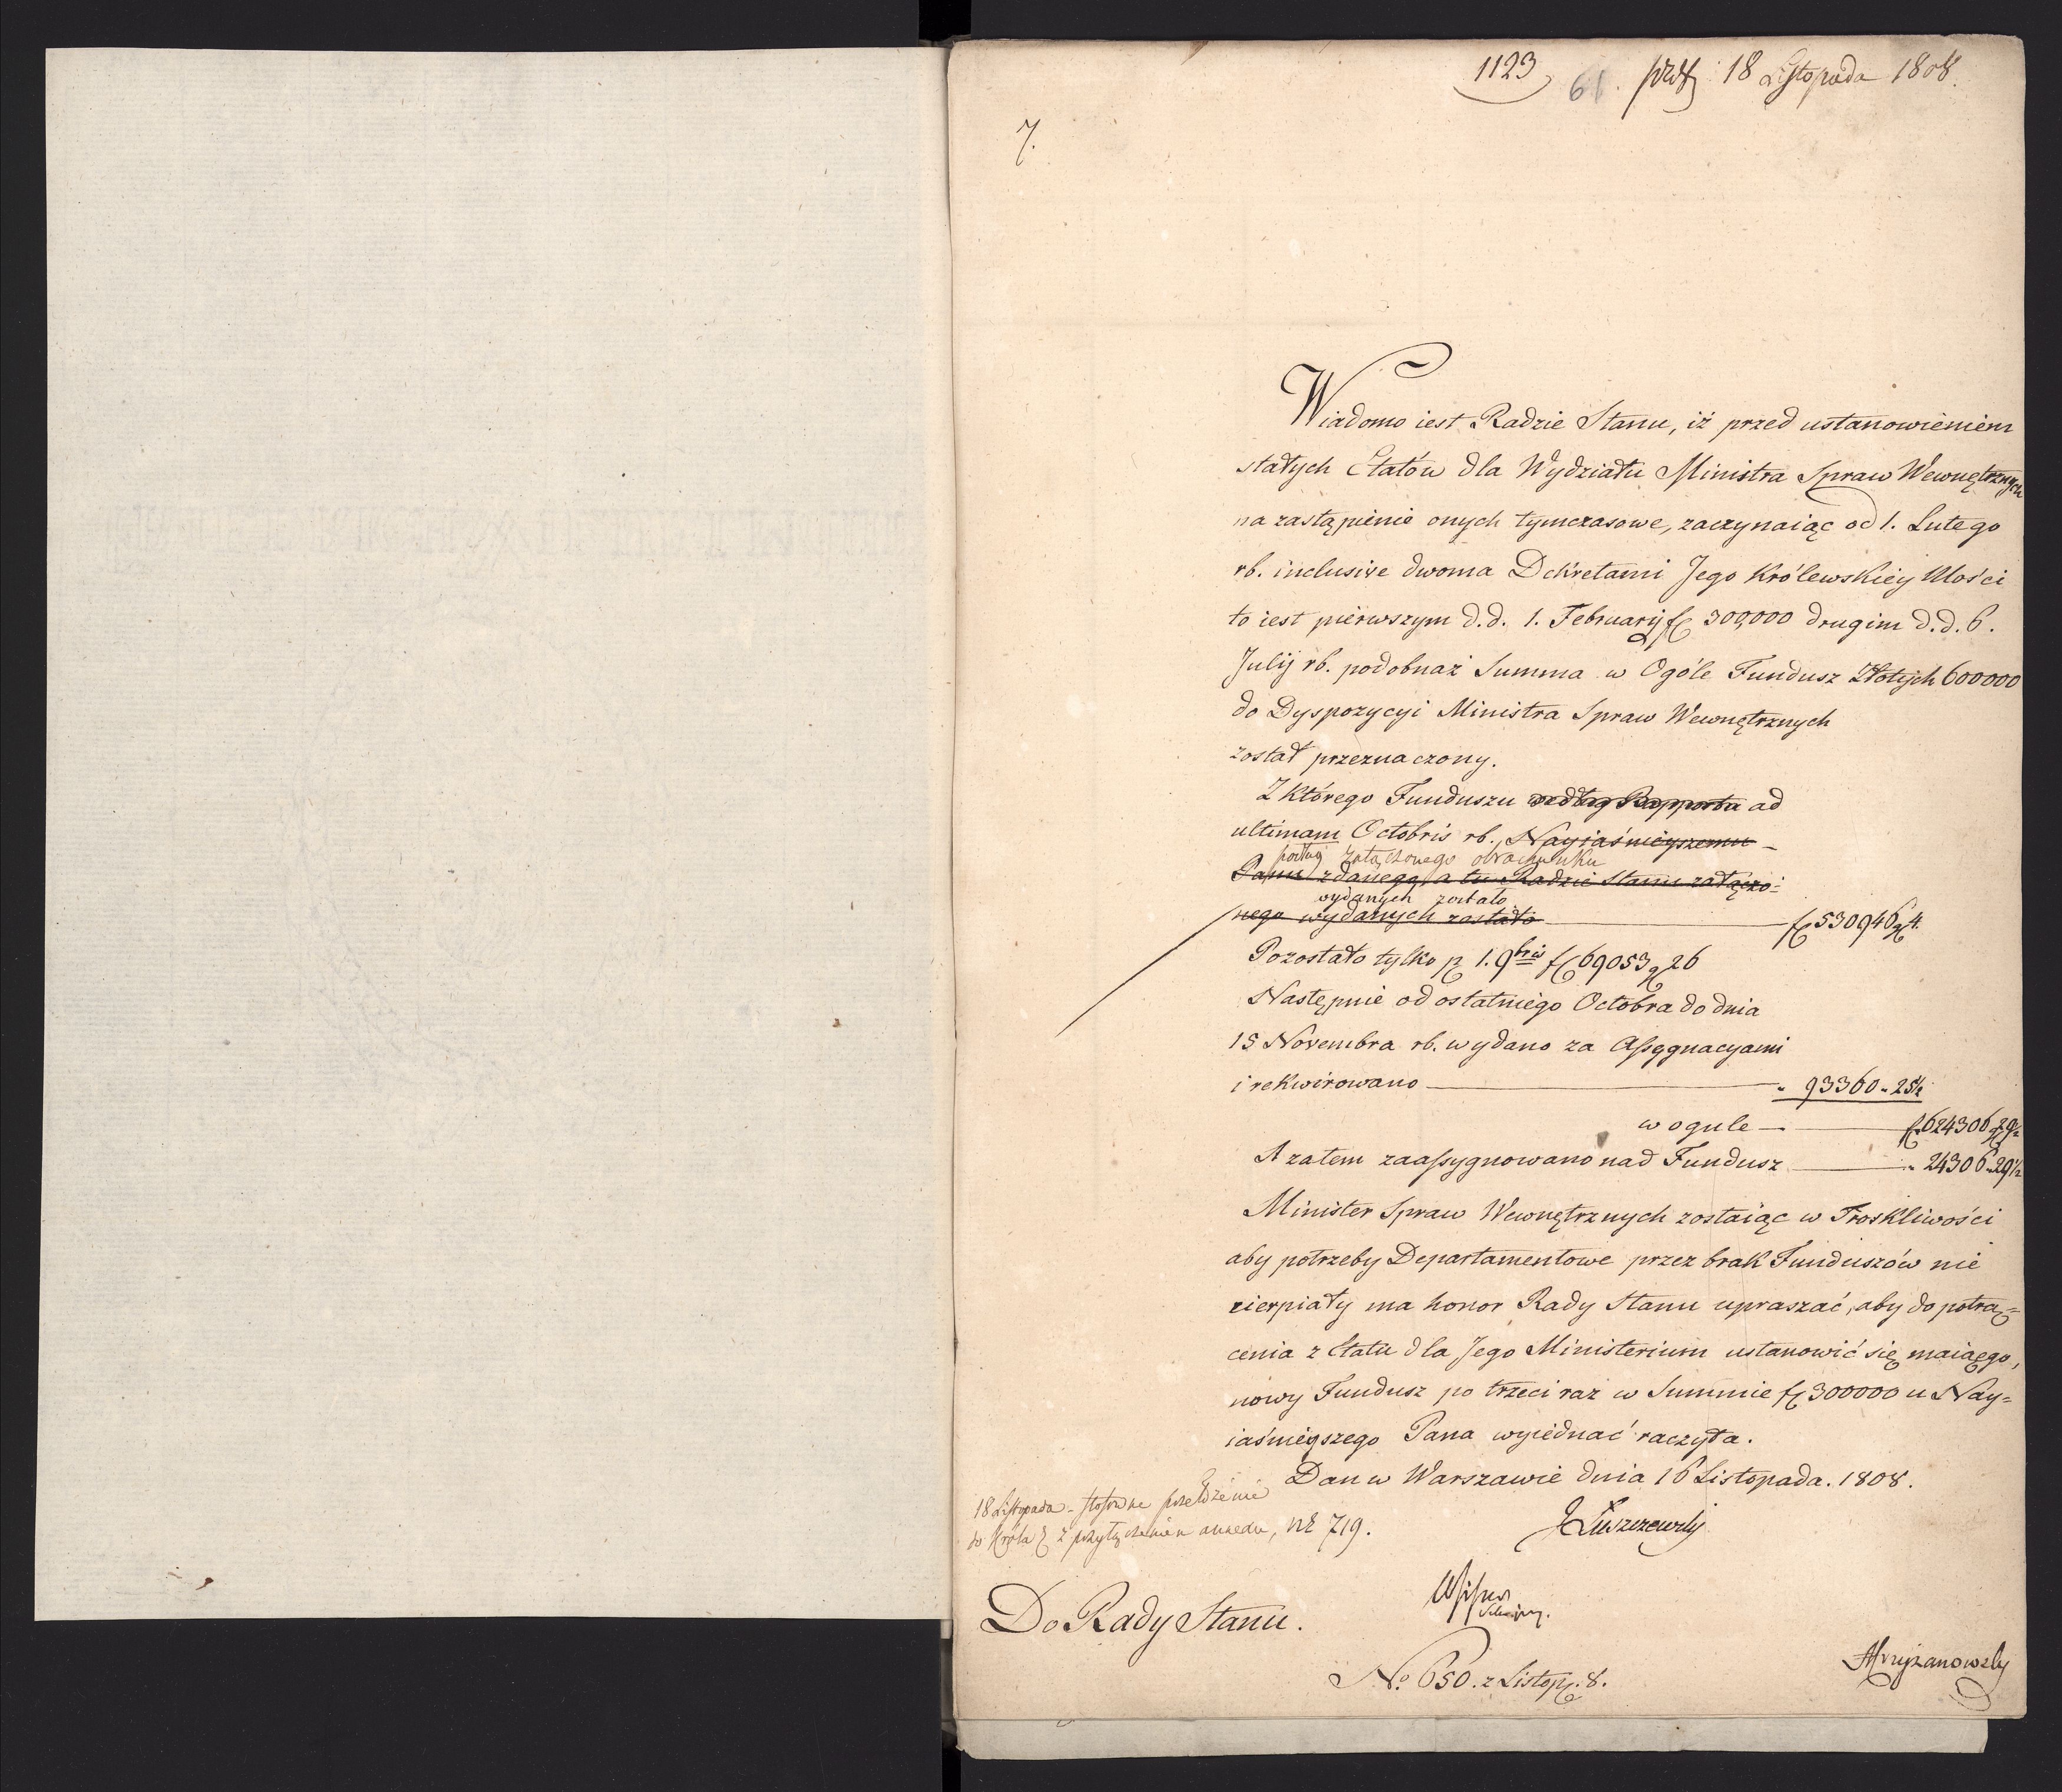 1123 61. 18 Listopada 1808.
7.
Wiadomo iest Radzie Stanu, iż przed ustanowieniem
stałych Etatów dla Wydziału Ministra Spraw Wewnętrznych
na zastąpienie onych tymczasowe, zaczynaiąc od 1. Lutego
rb. inclusive dwoma Dekretami Jego Królewskiey Mości
to iest pierwszym d.d. 1. Februarij fl 300,000 drugim d.d. 6.
Julij rb. podobnaż Summa w Ogóle Fundusz Złotych 600000
do Dyspozycyi Ministra Spraw Wewnętrznych
został przeznaczony.
Z którego Funduszu według Rapportu ad
ultimam Octobris rb. Nayiaśnieyszemu
podług załączonego obrachunku
Panu zdanego a tu Radzie Stanu załączo-
wydanych zostało
nego wydanych zostało — fl 530946 g 4.
Pozostało tylko p 1. 9bris fl 69053 g 26
Następnie od ostatniego Octobra do dnia
15 Novembra rb. wydano za Assygnacyami
i rekwirowano — " 93360 " 25½
w ogule — fl 624306 g 29½
A zatem zaassygnowano nad Fundusz — " 24306 " 29½
Minister Spraw Wewnętrznych zostaiąc w Troskliwości
aby potrzeby Departamentowe przez brak Funduszów nie
cierpiały ma honor Rady Stanu upraszać, aby do potrą=
cenia z Etatu dla Jego Ministerium ustanowić się maiącego,
nowy Fundusz po trzeci raz w Summie fl 300000 u Nay=
iaśnieyszego Pana wyiednać raczyła.
Dan w Warszawie dnia 16 Listopada. 1808.
18 Listopada - stosowne przełożenie
do Króla z przyłączeniem annexu, Nr 719.
J Łuszczewski
Do Rady Stanu.
No. 650. z Listop. 8.
AKrzyżanowski